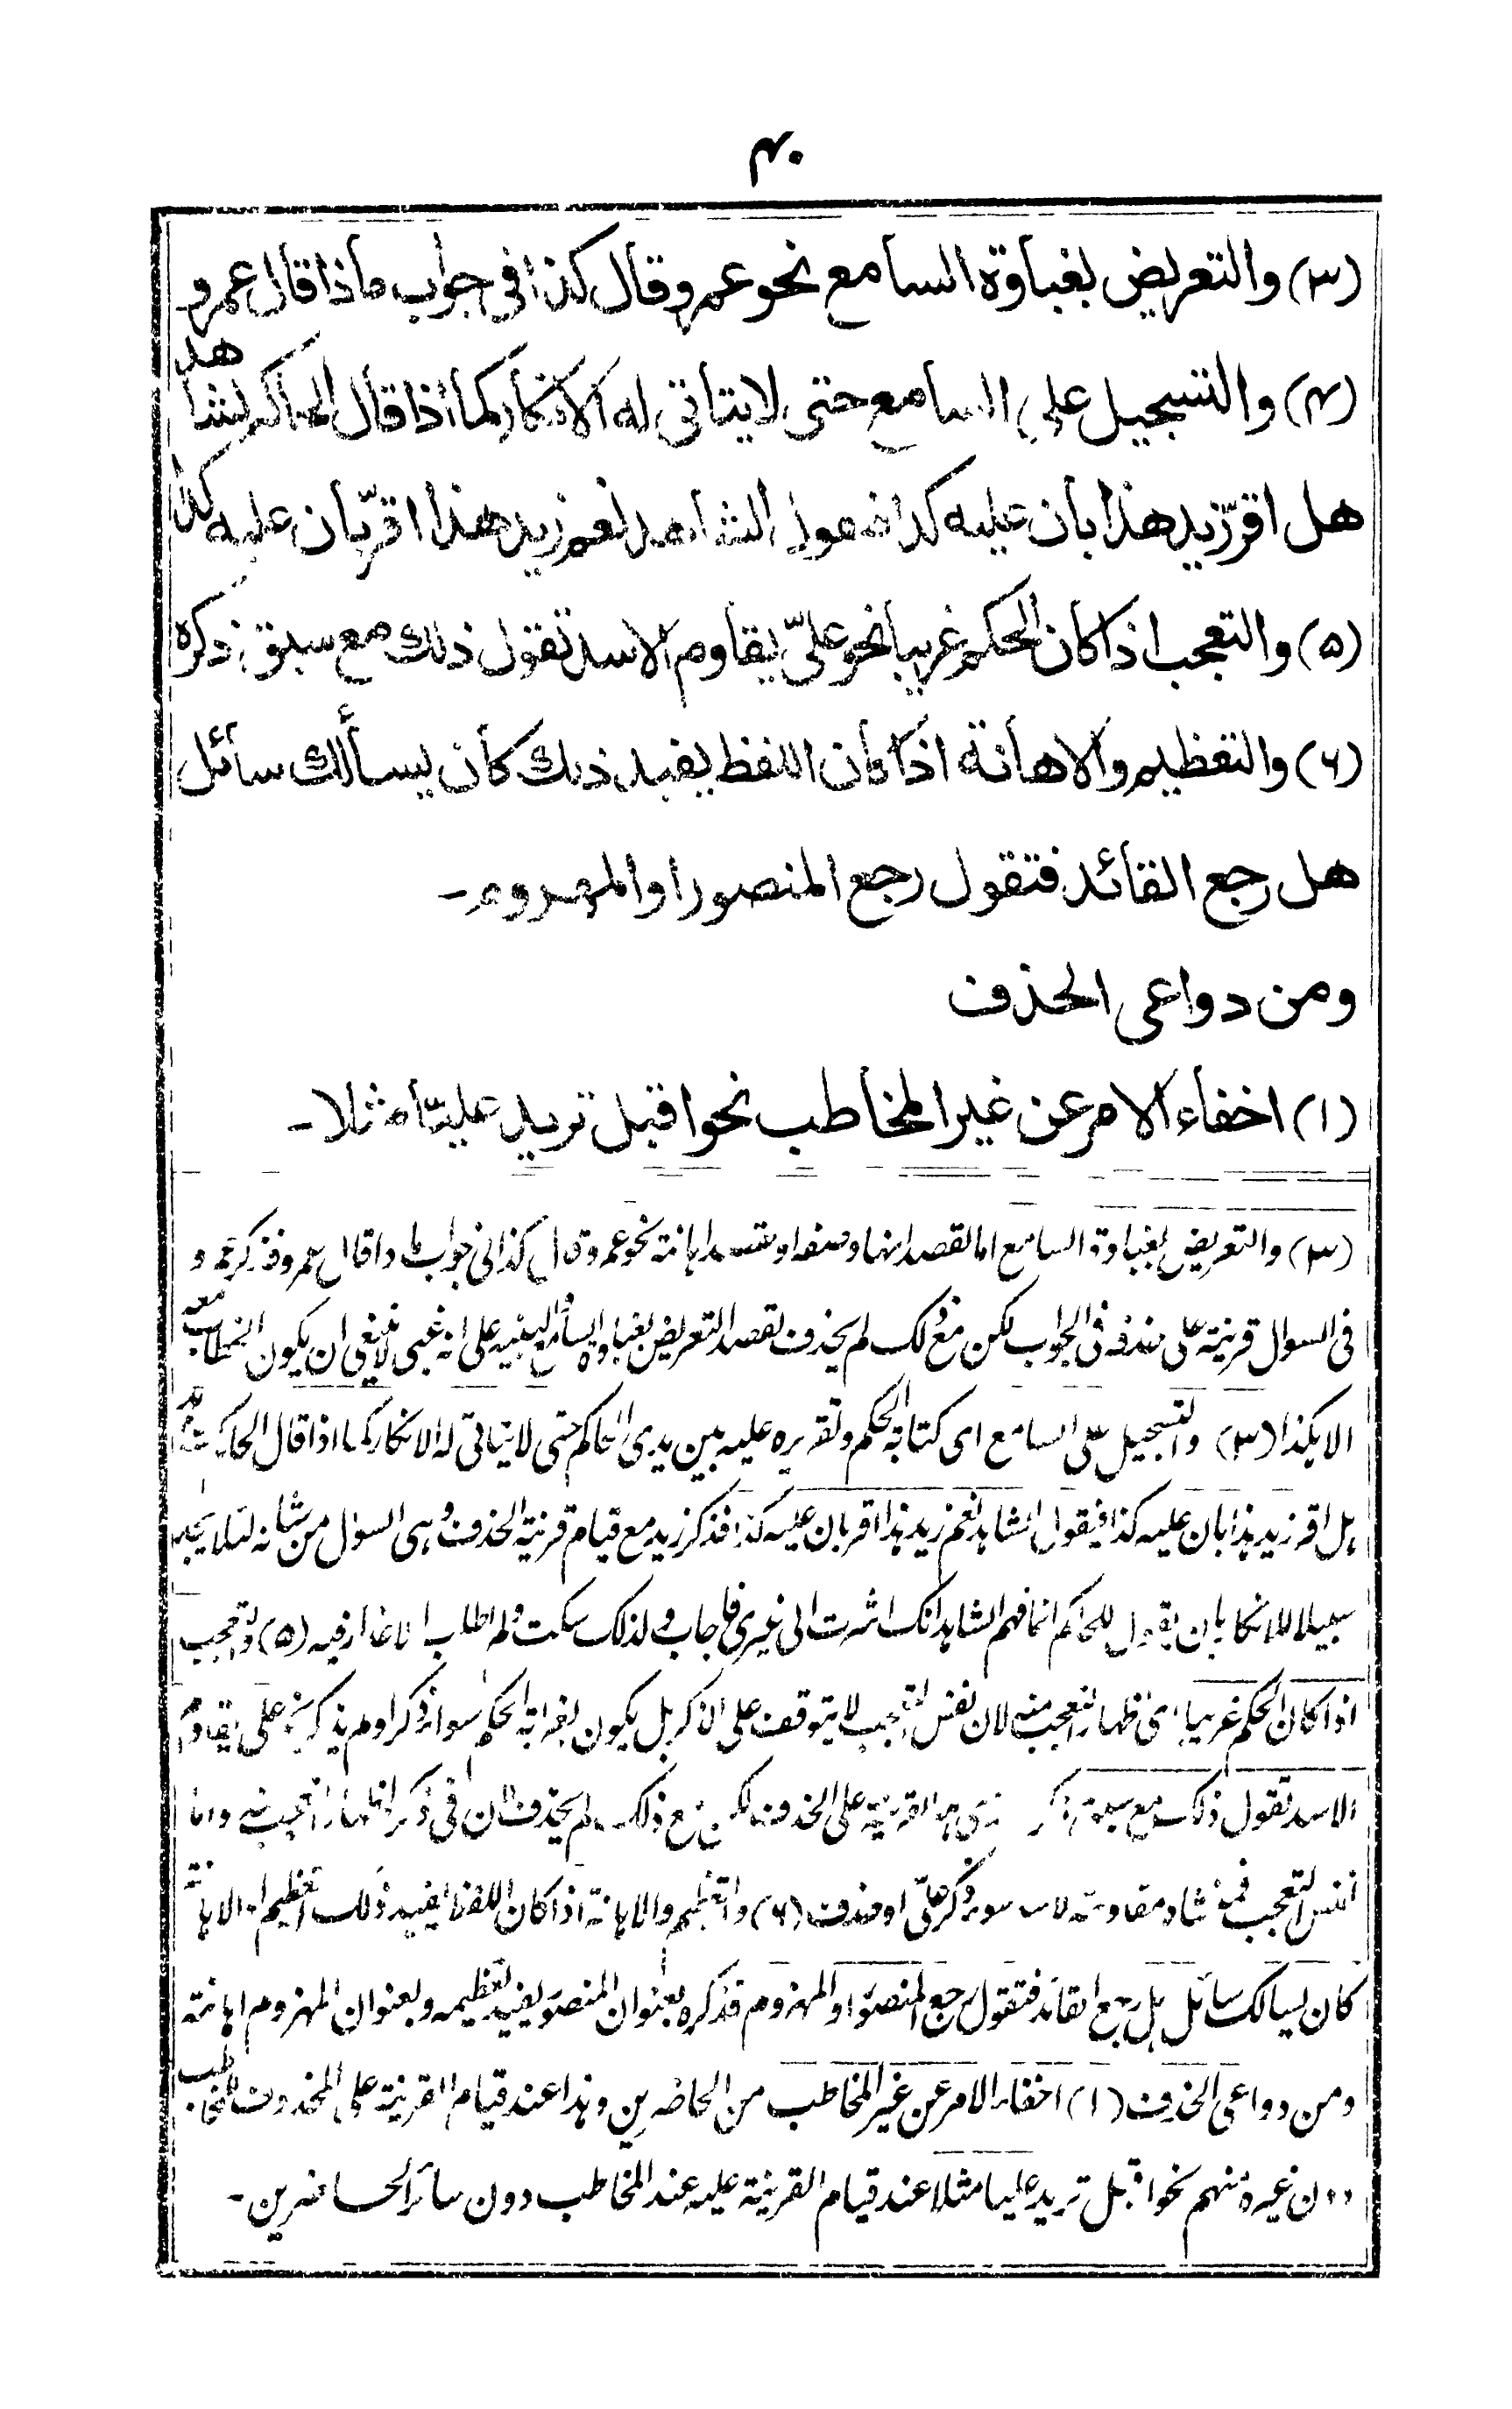 ۴۰
(۳) والتعريض بغباوة السامع نحو عمرو قال كذا فى جواب ماذا قال عمرو۔
(۴) والتسجيل على السامع حتى لا يتأتى له الانكار كما اذا قال الحاكم لشاهد
هل اقرّ زيد هذا بأن عليه كذا فيقول الشاهد نعم زيد هذا اقرّ بان عليه كذا
(۵) والتعجب اذا كان الحكم غريبا نحو علىّ يقاوم الاسد تقول ذلك مع سبق ذكره
(۶) والتعظيم والاهانة اذا كان اللفظ يفيد ذلك كأن يسألك سائل
هل رجع القائد فتقول رجع المنصور او المهزوم۔
ومن دواعى الحذف
(۱) اخفاء الامر عن غير المخاطب نحو اقبل تريد عليّا مثلا۔
(۳) والتعريض بغباوة السامع اما لقصد انها وصفه او قصد اهانته نحو عمرو قال كذا فى جواب ماذا قال عمرو فذكر عمرو
فى السوال قرينة على حذفه فى الجواب لكن مع ذلك لم يحذف لقصد التعريض بغباوة السامع والتنبيه على انه غبى لا ينبغى ان يكون الخطاب معه
الا هكذا (۴) والتسجيل على السامع اى كتابة الحكم وتقريره عليه بين يدى الحاكم حتى لا يتاتى له الانكار كما اذا قال الحاكم لشاهد
هل اقر زيد هذا بان عليه كذا فيقول الشاهد نعم زيد هذا اقر بان عليه كذا فذكر زيد مع قيام قرينة الحذف وهى السوال من شانه لئلا يجد
سبيلا للانكار بان يقول للحاكم انما فهم الشاهد انك اشرت الى غيرى فاجاب ولذلك سكت ولم اطلب الاعذار فيه (۵) والتعجب
اذا كان الحكم غريبا اى اظهار التعجب منه لان نفس التعجب لا يتوقف على الذكر بل يكون لغرابة الحكم سواء ذكر او لم يذكر نحو على يقاوم
الاسد تقول ذلك مع سبق ذكره الذى هو القرينة على الحذف لكن مع ذلك لم يحذف لان فى ذكره اظهار التعجب منه واما
نفس التعجب فمنشاه مقاومته للاسد سواء ذكر على او حذف (۶) والتعظيم والاهانة اذا كان اللفظ يفيد ذلك التعظيم او الاهانة
كان يسالك سائل هل رجع القائد فتقول رجع المنصور او المهزوم فذكره بعنوان المنصور يفيد تعظيمه وبعنوان المهزوم اهانته
ومن دواعى الحذف (۱) اخفاء الامر عن غير المخاطب من الحاضرين وهذا عند قيام القرينة على المحذوف للمخاطب
دون غيره منهم نحو اقبل تريد عليا مثلا عند قيام القرينة عليه عند المخاطب دون سائر الحاضرين۔